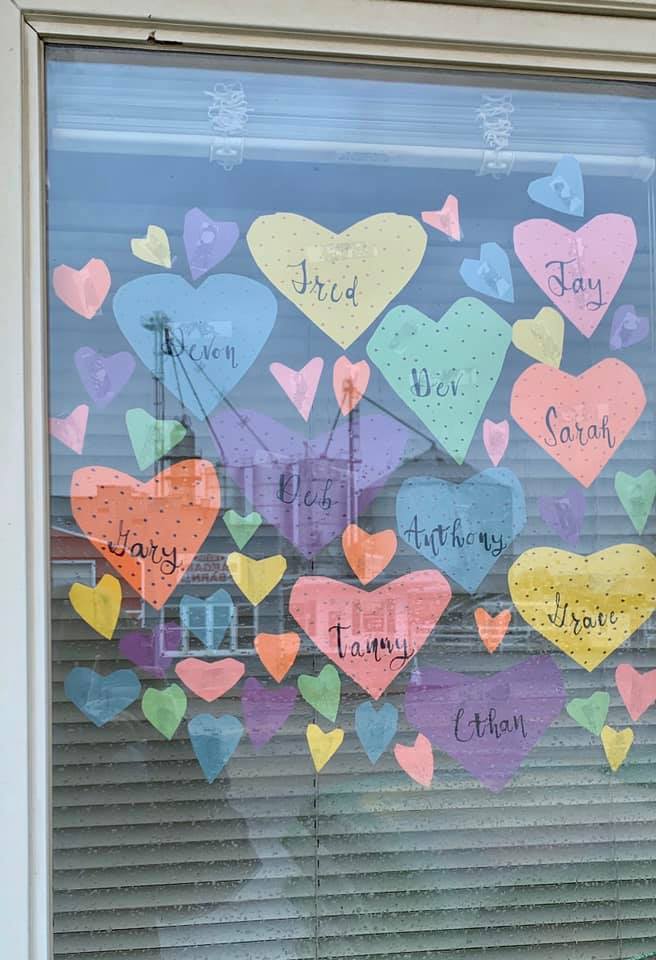 Fred
Jay
Devon
Dev
Sarah
Deb
Gary
Anthony
Grace
Tammy
Ethan